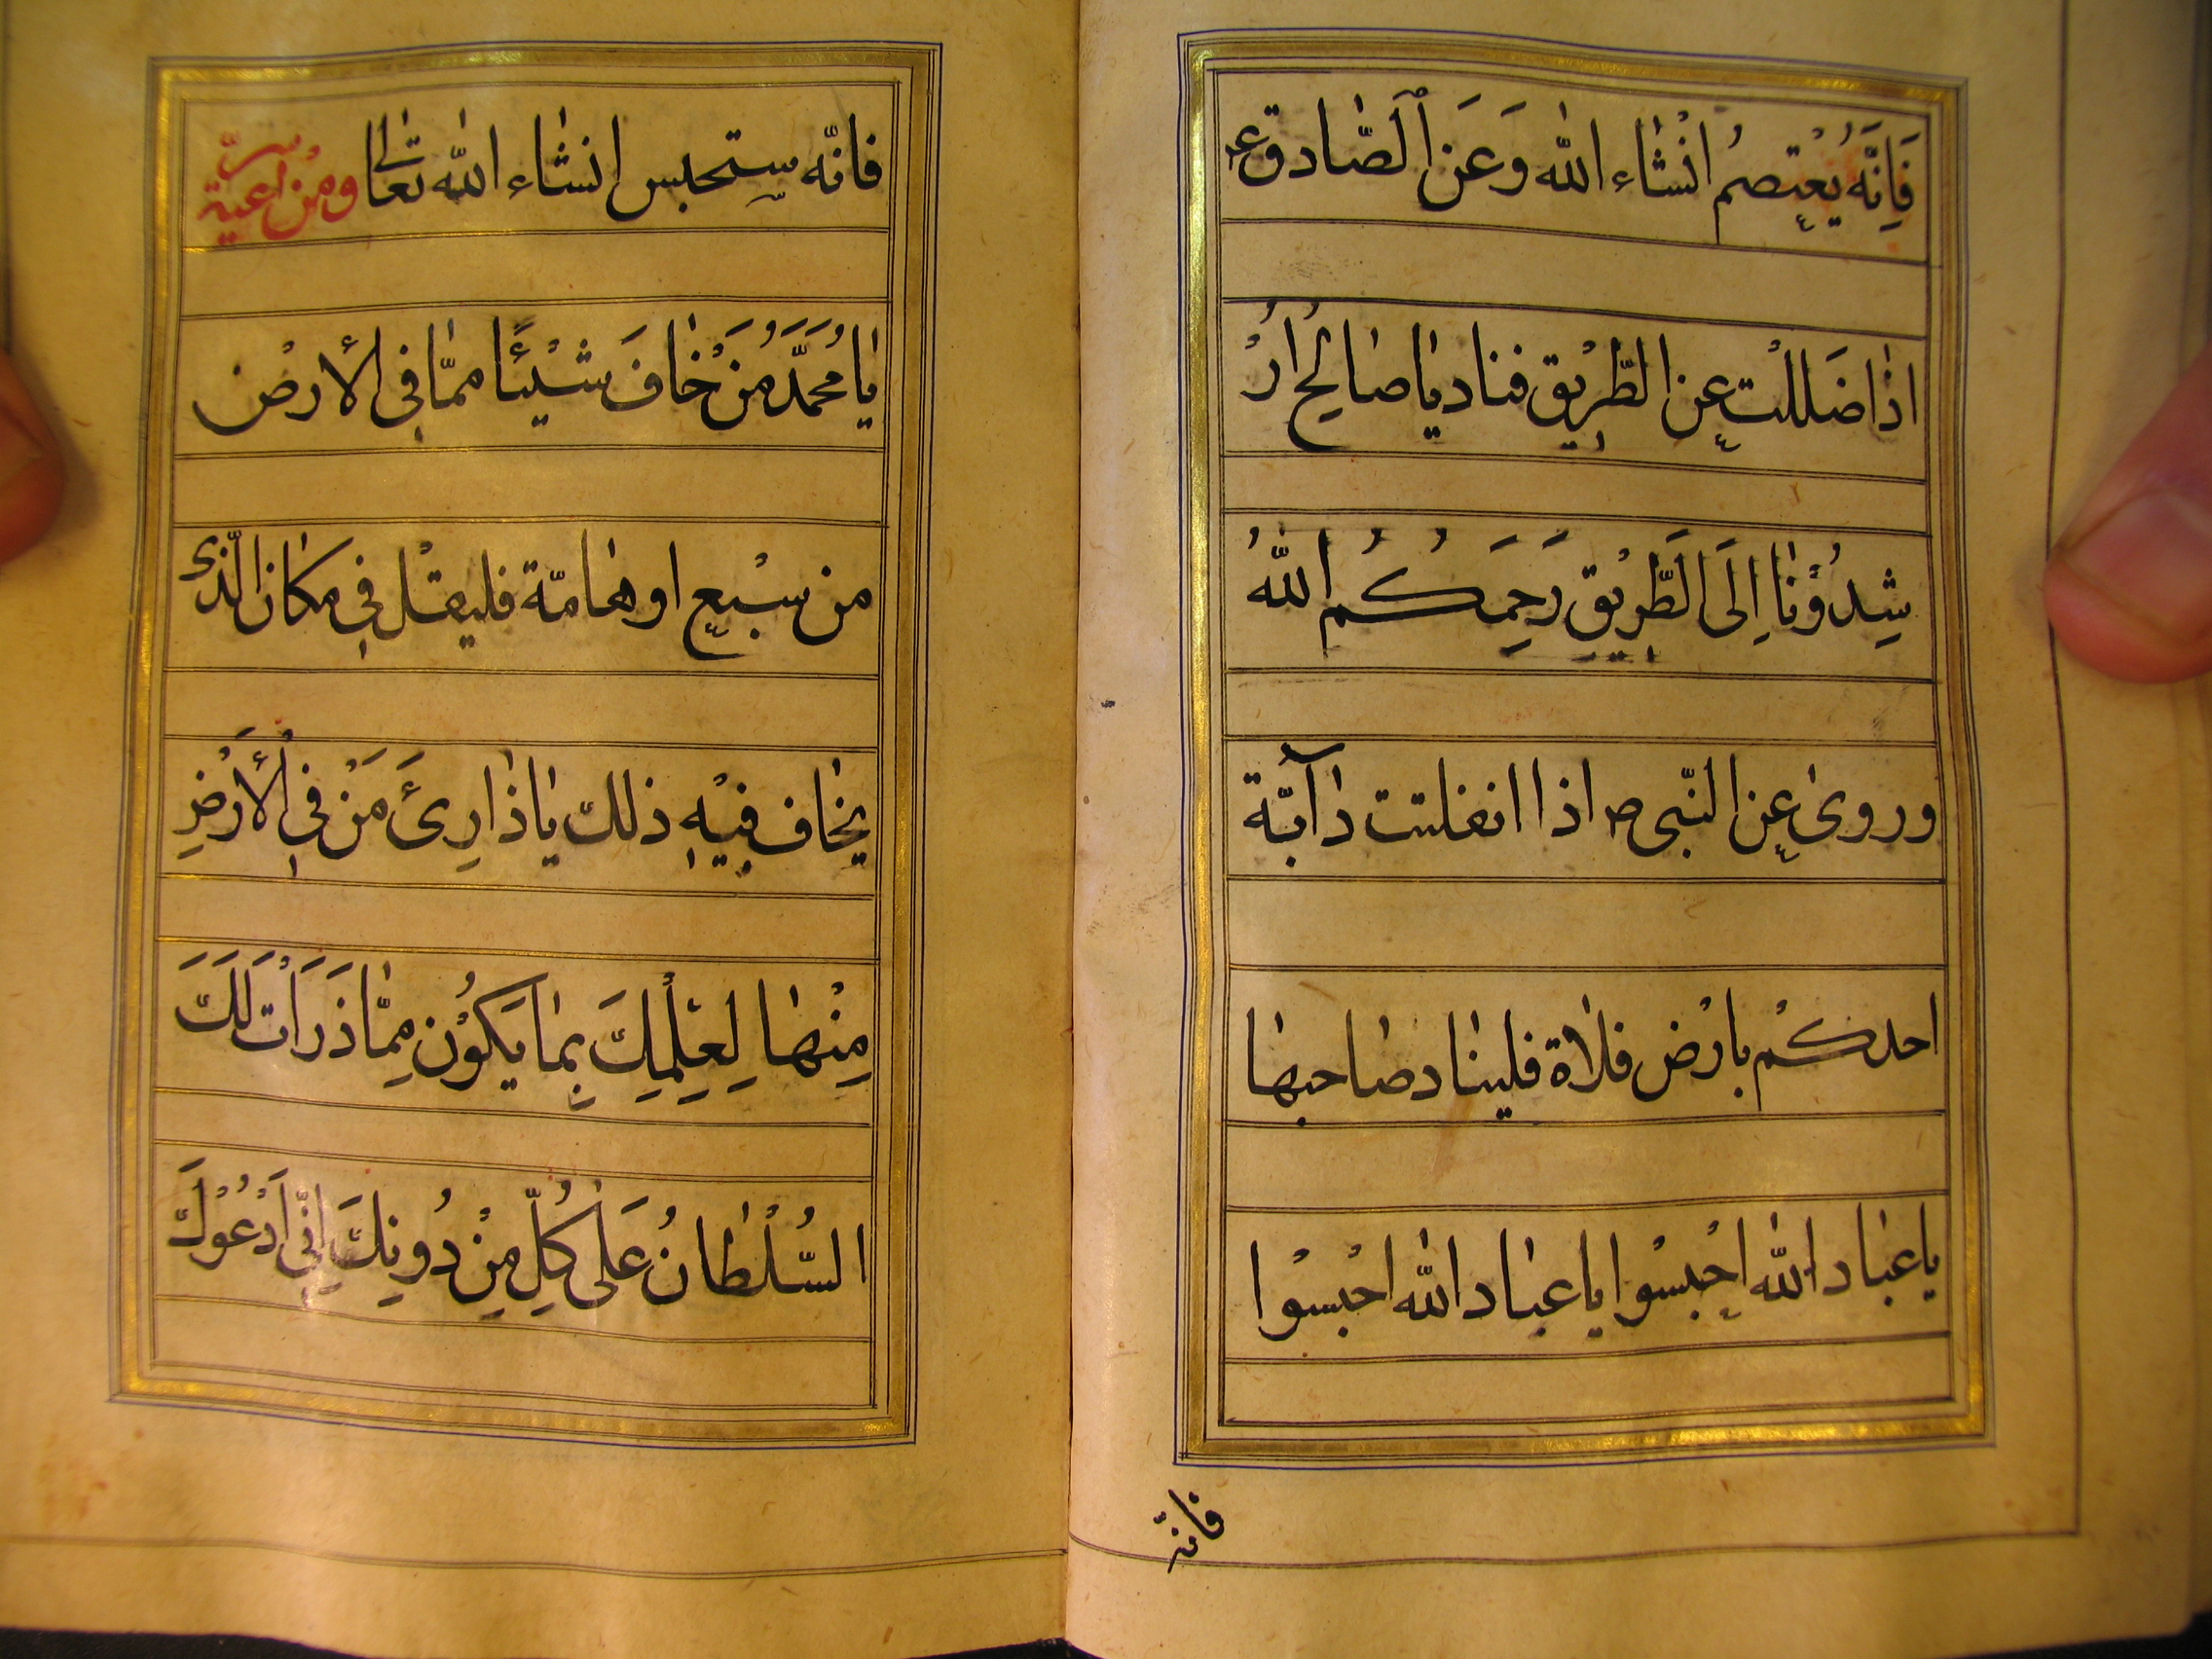 فَاِنَّهُ يُعْتصمُ انْشاء اللّه وَعَن الَصّادق ع
اذا ضَللْت عن الطّريْق فناد يا صالحُ ارْ
شِدُوْنا اِلَى الَطَّرِيْقِ رَحِمَكُمُ اللّهُ
وروى عن النّبى ص اذا انفلتت دآبّة
احدكمْ بارْض فلاة فليناد صاحبها
يا عباد اللّه احْبسوْا يا عباد اللّه احْبسوْا
فانه
فانّه ستحبس انشاء اللّه تعالى ومنْ ادعية سرّ
يا محَمَّدُ مَنْ خافَ شيْئًا ممّا فى الأرضْ
من سبْع او هامّة فليقلْ فى مكان الّذى
يخاف فيْه ذلك يا ذارِئَ مَنْ فى الْأَرْضِ
مِنْها لِعِلْمِكَ بِما يَكوُنُ مِمّا ذَرَأْتَ لَكَ
السُّلْطانُ عَلى كُلِّ مِنْ دُونِكَ اِنّى اَدْعُوْكَ